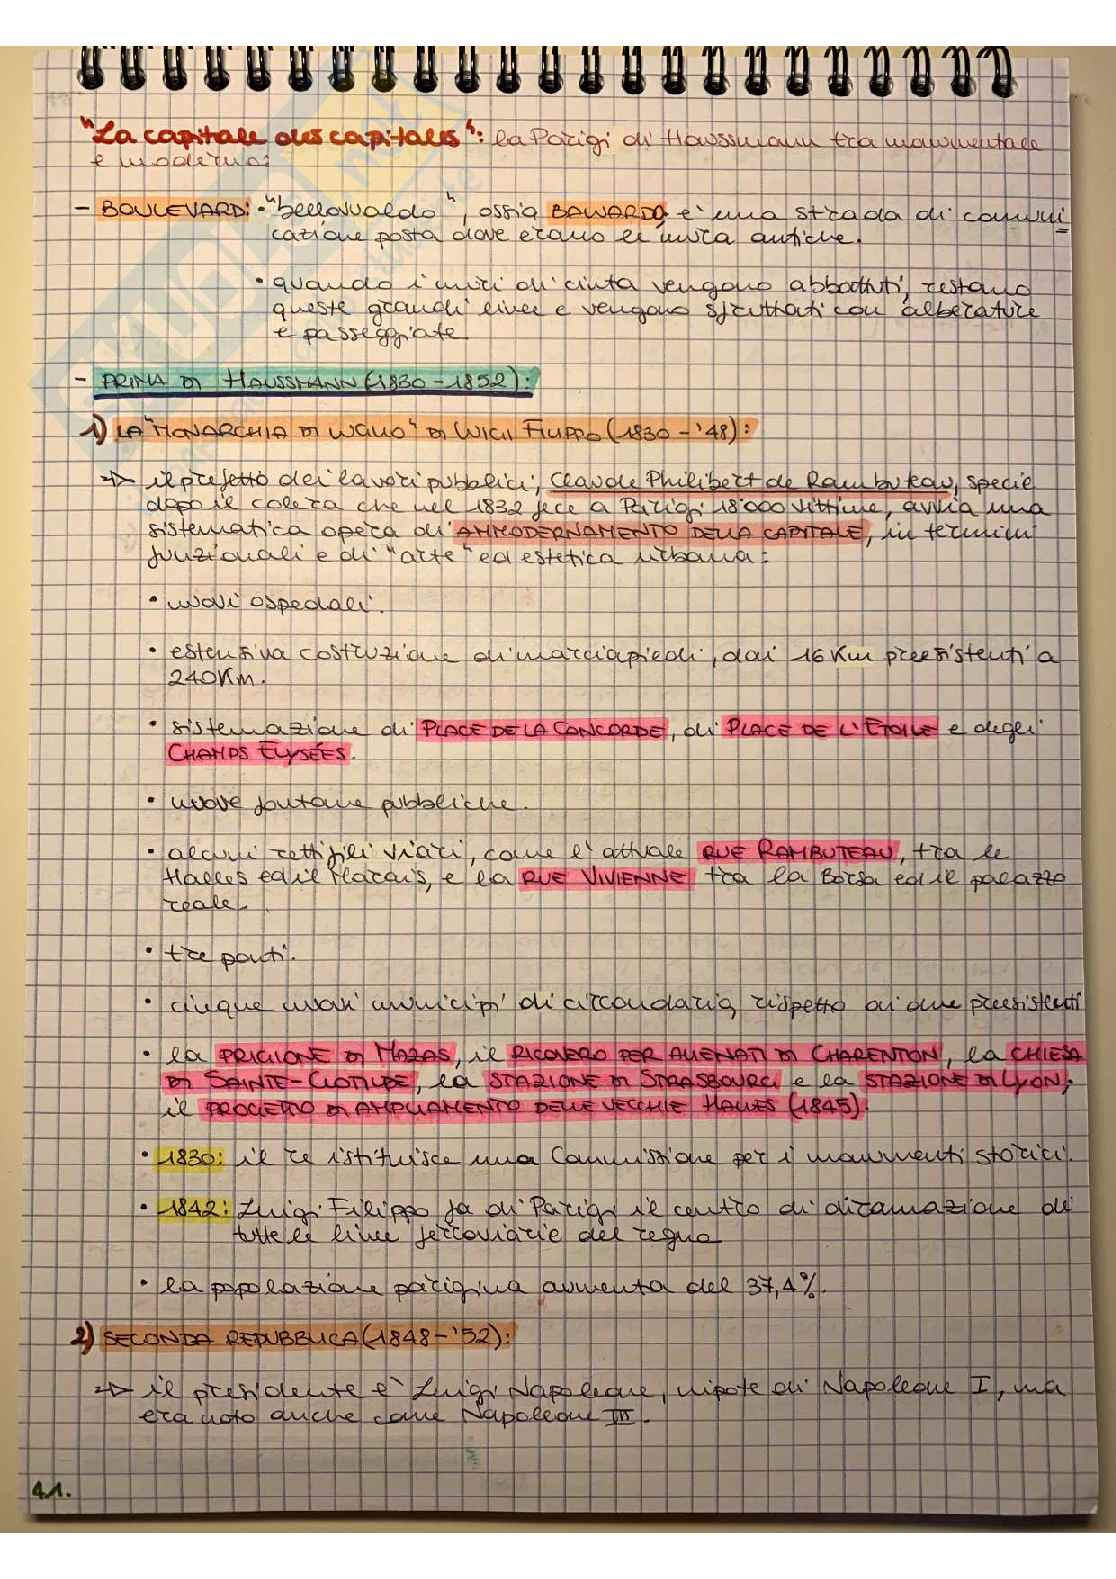 "La capitale des capitales": la Parigi di Haussmann tra monumentale
e moderna:
- BOULEVARD: • "bellovualdo", ossia BALUARDO, è una strada di comuni
cazione posta dove erano le mura antiche.
• quando i muri di cinta vengono abbattuti, restano
queste grandi linee e vengono sfruttati con alberature
e passeggiate.
- PRIMA DI HAUSSMANN (1830-1852):
1) LA "MONARCHIA DI LUGLIO" DI LUIGI FILIPPO (1830-'48):
=> il prefetto dei lavori pubblici, Claude Philibert de Rambuteau, specie
dopo il colera che nel 1832 fece a Parigi 18'000 vittime, avvia una
sistematica opera di AMMODERNAMENTO DELLA CAPITALE, in termini
funzionali e di "arte" ed estetica urbana:
• nuovi ospedali.
• estensiva costruzione di marciapiedi, dai 16 Km preesistenti a
240Km.
• sistemazione di PLACE DE LA CONCORDE, di PLACE DE L'ÉTOILE e degli
CHAMPS ELYSÉES.
• nuove fontane pubbliche.
• alcuni rettifili viari, come l'attuale RUE RAMBUTEAU, tra le
Halles ed il Marais, e la RUE VIVIENNE tra la Borsa ed il palazzo
reale.
• tre ponti.
• cinque nuovi municipi di circondario, rispetto ai due preesistenti
• la PRIGIONE DI MAZAS, il RICOVERO PER ALIENATI DI CHARENTON, la CHIESA
DI SAINTE-CLOTILDE, la STAZIONE DI STRASBOURG e la STAZIONE DI LYON,
il PROGETTO DI AMPLIAMENTO DELLE VECCHIE HALLES (1845).
• 1830: il re istituisce una Commissione per i monumenti storici.
• 1842: Luigi Filippo fa di Parigi il centro di diramazione di
tutte le linee ferroviarie del regno
• la popolazione parigina aumenta del 37,4%.
2) SECONDA REPUBBLICA (1848-'52):
=> il presidente è Luigi Napoleone, nipote di Napoleone I, ma
era noto anche come Napoleone III.
41.